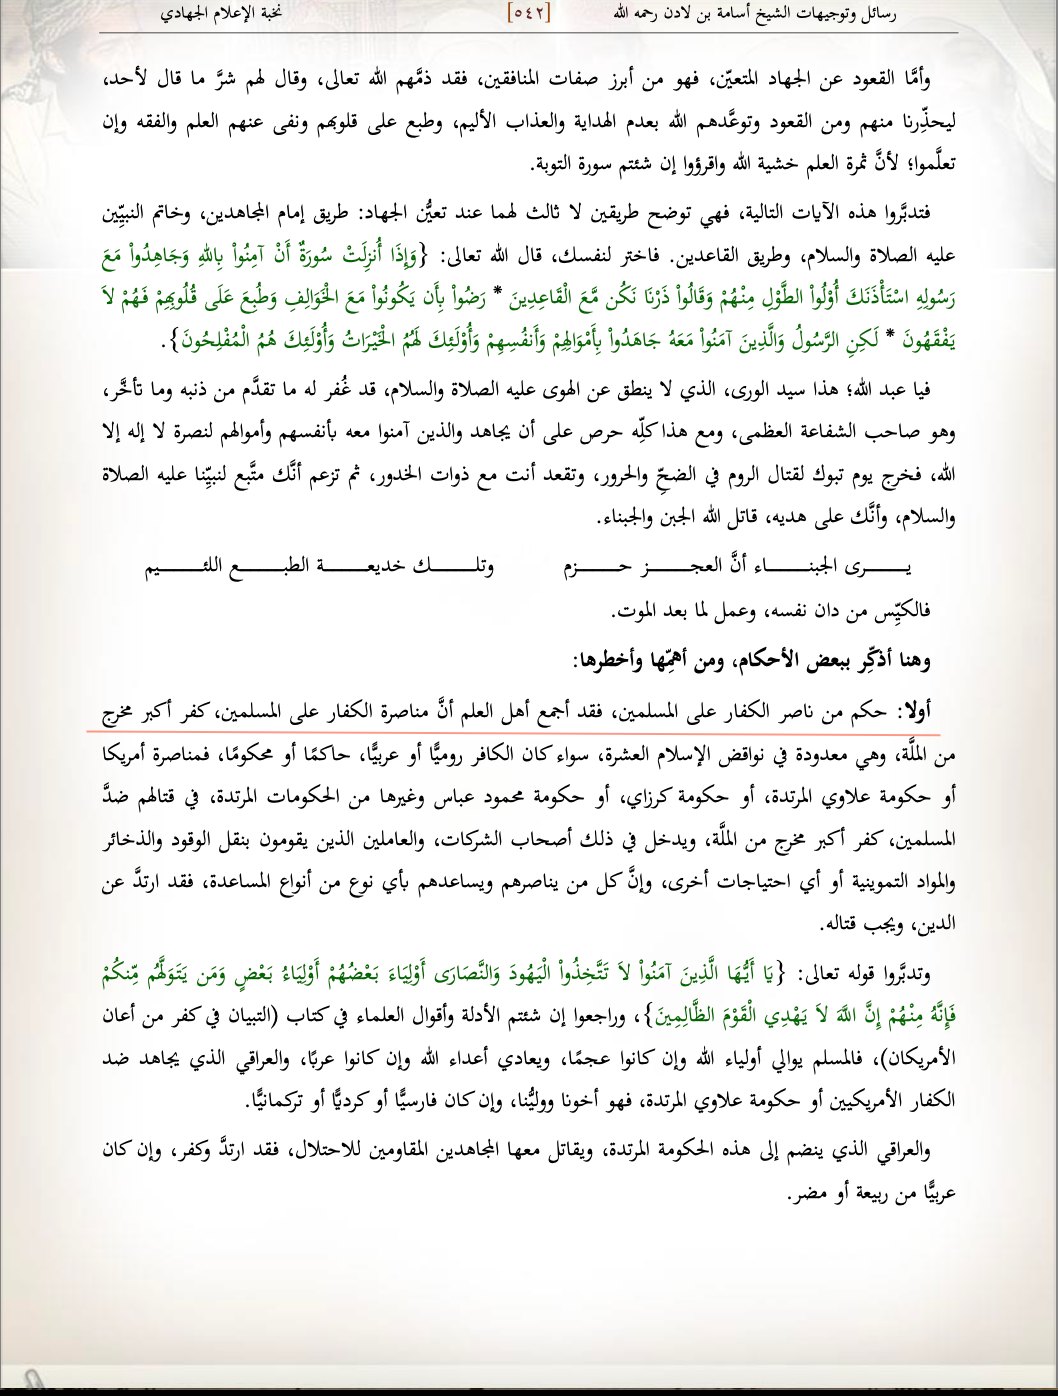 رسائل وتوجيهات الشيخ أسامة بن لادن رحمه الله [٥٤٢] نخبة الإعلام الجهادي
وأمَّا القعود عن الجهاد المتعيّن، فهو من أبرز صفات المنافقين، فقد ذمَّهم الله تعالى، وقال لهم شرَّ ما قال لأحد،
ليحذّرنا منهم ومن القعود وتوعَّدهم الله بعدم الهداية والعذاب الأليم، وطبع على قلوبهم ونفى عنهم العلم والفقه وإن
تعلَّموا؛ لأنَّ ثمرة العلم خشية الله واقرؤوا إن شئتم سورة التوبة.
فتدبَّروا هذه الآيات التالية، فهي توضح طريقين لا ثالث لهما عند تعيُّن الجهاد: طريق إمام المجاهدين، وخاتم النبيّين
عليه الصلاة والسلام، وطريق القاعدين. فاختر لنفسك، قال الله تعالى: {وَإِذَا أُنزِلَتْ سُورَةٌ أَنْ آمِنُواْ بِاللهِ وَجَاهِدُواْ مَعَ
رَسُولِهِ اسْتَأْذَنَكَ أُوْلُواْ الطَّوْلِ مِنْهُمْ وَقَالُواْ ذَرْنَا نَكُن مَّعَ الْقَاعِدِينَ * رَضُواْ بِأَن يَكُونُواْ مَعَ الْخَوَالِفِ وَطُبِعَ عَلَى قُلُوبِهِمْ فَهُمْ لاَ
يَفْقَهُونَ * لَكِنِ الرَّسُولُ وَالَّذِينَ آمَنُواْ مَعَهُ جَاهَدُواْ بِأَمْوَالِهِمْ وَأَنفُسِهِمْ وَأُوْلَئِكَ لَهُمُ الْخَيْرَاتُ وَأُوْلَئِكَ هُمُ الْمُفْلِحُونَ}.
فيا عبد الله؛ هذا سيد الورى، الذي لا ينطق عن الهوى عليه الصلاة والسلام، قد غُفر له ما تقدَّم من ذنبه وما تأخَّر،
وهو صاحب الشفاعة العظمى، ومع هذا كلِّه حرص على أن يجاهد والذين آمنوا معه بأنفسهم وأموالهم لنصرة لا إله إلا
الله، فخرج يوم تبوك لقتال الروم في الضحِّ والحرور، وتقعد أنت مع ذوات الخدور، ثم تزعم أنَّك متَّبع لنبيّنا عليه الصلاة
والسلام، وأنَّك على هديه، قاتل الله الجبن والجبناء.
يـرى الجبنـاء أنَّ العجـز حـزم وتلـك خديعـة الطبـع اللئـيم
فالكيّس من دان نفسه، وعمل لما بعد الموت.
وهنا أذكّر ببعض الأحكام، ومن أهمّها وأخطرها:
أولا: حكم من ناصر الكفار على المسلمين، فقد أجمع أهل العلم أنَّ مناصرة الكفار على المسلمين، كفر أكبر مخرج
من الملَّة، وهي معدودة في نواقض الإسلام العشرة، سواء كان الكافر روميًّا أو عربيًّا، حاكمًا أو محكومًا، فمناصرة أمريكا
أو حكومة علاوي المرتدة، أو حكومة كرزاي، أو حكومة محمود عباس وغيرها من الحكومات المرتدة، في قتالهم ضدَّ
المسلمين، كفر أكبر مخرج من الملَّة، ويدخل في ذلك أصحاب الشركات، والعاملين الذين يقومون بنقل الوقود والذخائر
والمواد التموينية أو أي احتياجات أخرى، وإنَّ كل من يناصرهم ويساعدهم بأي نوع من أنواع المساعدة، فقد ارتدَّ عن
الدين، ويجب قتاله.
وتدبَّروا قوله تعالى: {يَا أَيُّهَا الَّذِينَ آمَنُواْ لاَ تَتَّخِذُواْ الْيَهُودَ وَالنَّصَارَى أَوْلِيَاءَ بَعْضُهُمْ أَوْلِيَاءُ بَعْضٍ وَمَن يَتَوَلَّهُم مِّنكُمْ
فَإِنَّهُ مِنْهُمْ إِنَّ اللَّهَ لاَ يَهْدِي الْقَوْمَ الظَّالِمِينَ}، وراجعوا إن شئتم الأدلة وأقوال العلماء في كتاب (التبيان في كفر من أعان
الأمريكان)، فالمسلم يوالي أولياء الله وإن كانوا عجمًا، ويعادي أعداء الله وإن كانوا عربًا، والعراقي الذي يجاهد ضد
الكفار الأمريكيين أو حكومة علاوي المرتدة، فهو أخونا ووليُّنا، وإن كان فارسيًّا أو كرديًّا أو تركمانيًّا.
والعراقي الذي ينضم إلى هذه الحكومة المرتدة، ويقاتل معها المجاهدين المقاومين للاحتلال، فقد ارتدَّ وكفر، وإن كان
عربيًّا من ربيعة أو مضر.